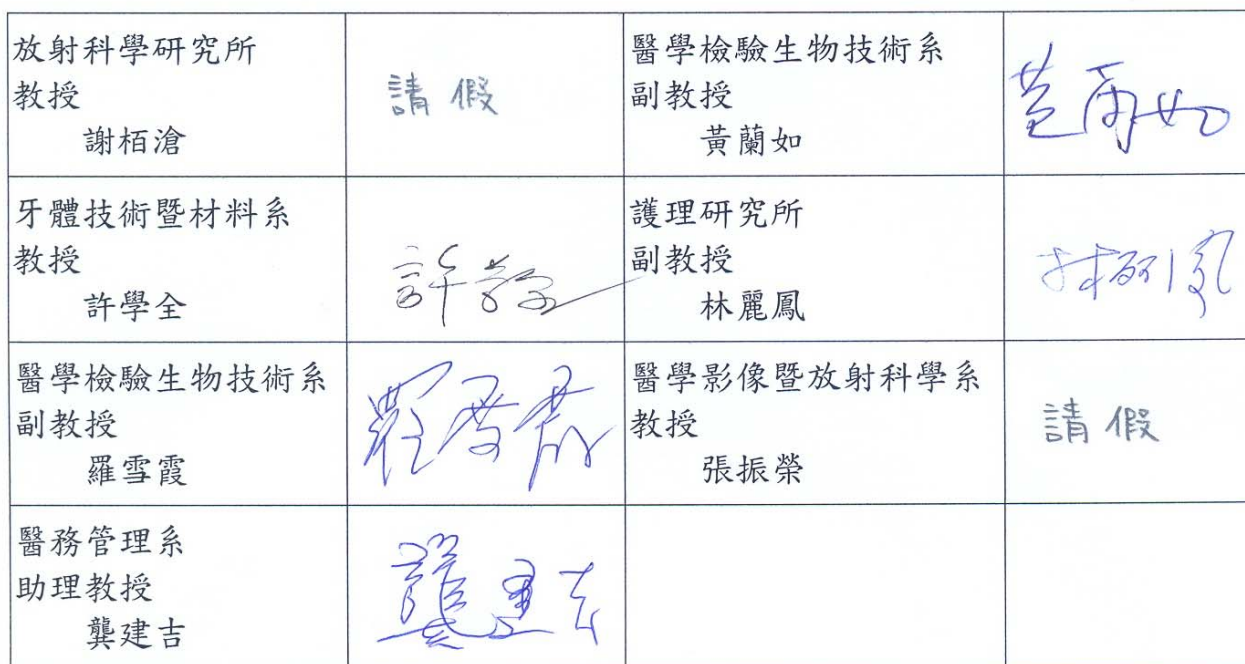 放射科學研究所
教授
謝栢滄
請假
醫學檢驗生物技術系
副教授
黃蘭如
黃蘭如
牙體技術暨材料系
教授
許學全
許學全
護理研究所
副教授
林麗鳳
林麗鳳
醫學檢驗生物技術系
副教授
羅雪霞
羅雪霞
醫學影像暨放射科學系
教授
張振榮
請假
醫務管理系
助理教授
龔建吉
龔建吉